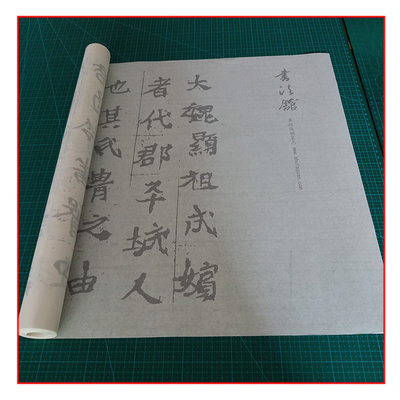 書法館
大魏顯祖成嬪
者代郡平城人
也其氏胄之由